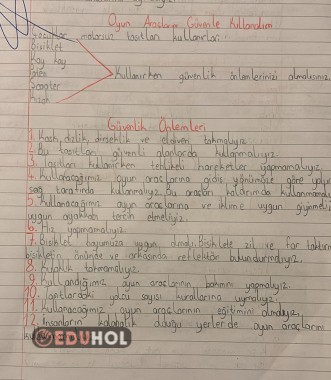 Oyun Araçlarını Güvenle Kullanalım
Çocuklar motorsuz taşıtları kullanırlar.
Bisiklet
Kay kay
Paten
Scooter
Kızak
Kullanırken güvenlik önlemlerinizi almalısınız.
Güvenlik Önlemleri
1. Kask, dizlik, dirseklik ve eldiven takmalıyız.
2. Bu taşıtları güvenli alanlarda kullanmalıyız.
3. Taşıtları kullanırken tehlikeli hareketler yapmamalıyız.
4. Kullanacağımız oyun araçlarını gidiş yönümüze göre yolun
sağ tarafında kullanmalıyız. Bu araçları kaldırımda kullanmamalıyız.
5. Kullanacağımız oyun araçlarına ve iklime uygun giyinmeli
uygun ayakkabı tercih etmeliyiz.
6. Hız yapmamalıyız.
7. Bisiklet boyumuza uygun olmalı. Bisiklete zil ve far taktırmalı
bisikletin önünde ve arkasında reflektör bulundurmalıyız.
8. Kulaklık takmamalıyız.
9. Kullandığımız oyun araçlarının bakımını yapmalıyız.
10. Taşıtlardaki yolcu sayısı kurallarına uymalıyız.
11. Kullanacağımız oyun araçlarının eğitimini almalıyız.
12. İnsanların kalabalık olduğu yerlerde oyun araçlarını
EDUHOL